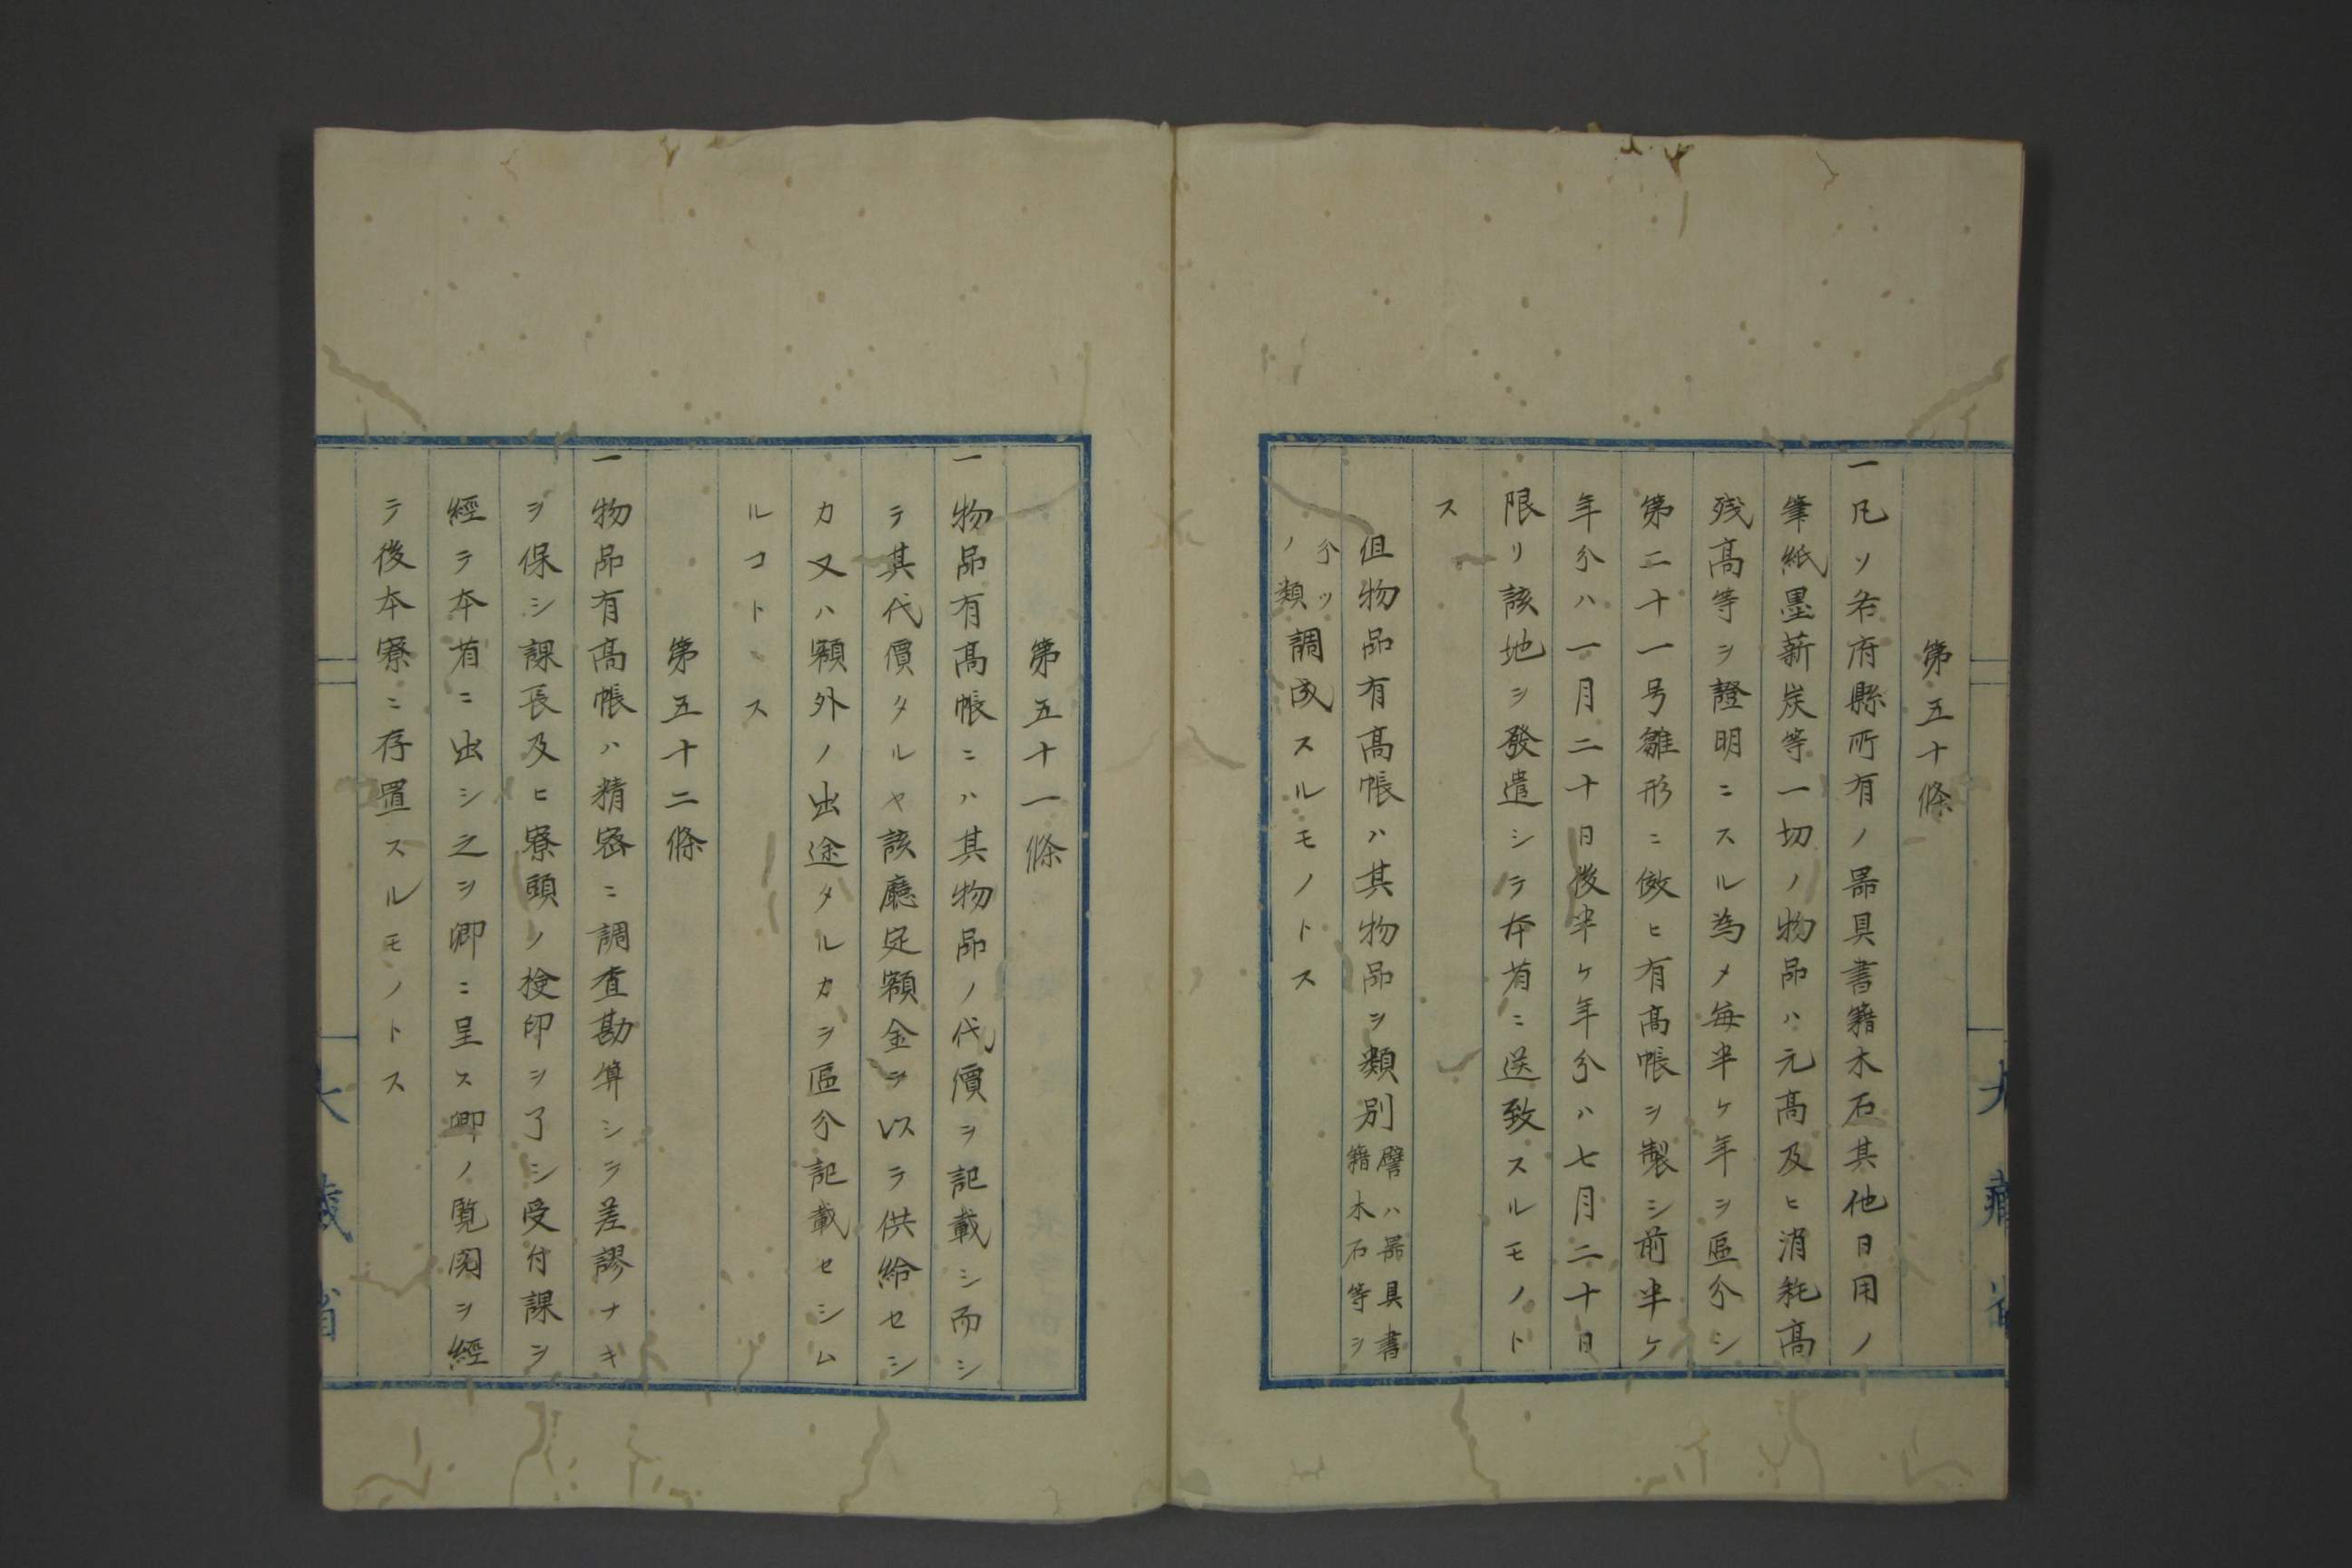 第五十條
一凡ソ各府縣所有ノ器具書籍木石其他日用ノ
筆紙墨薪炭等一切ノ物品ハ元高及ヒ消耗高
残高等ヲ證明ニスル為メ毎半ケ年ヲ區分シ
第二十一号雛形ニ倣ヒ有高帳ヲ製シ前半ケ
年分ハ一月二十日後半ケ年分ハ七月二十日
限リ該地ヲ發遣シテ本省ニ送致スルモノト
ス
但物品有高帳ハ其物品ヲ類別譬ハ器具書
籍木石等ヲ
分ツ
ノ類調成スルモノトス
大藏省
第五十一條
一物品有高帳ニハ其物品ノ代價ヲ記載シ而シ
テ其代價タルヤ該廳定額金ヲ以テ供給セシ
カ又ハ額外ノ出途タルカヲ區分記載セシム
ルコトヽス
第五十二條
一物品有高帳ハ精密ニ調査勘算シテ差謬ナキ
ヲ保シ課長及ヒ寮頭ノ撿印ヲ了シ受付課ヲ
經テ本省ニ出シ之ヲ卿ニ呈ス卿ノ覧閲ヲ經
テ後本寮ニ存置スルモノトス
大藏省